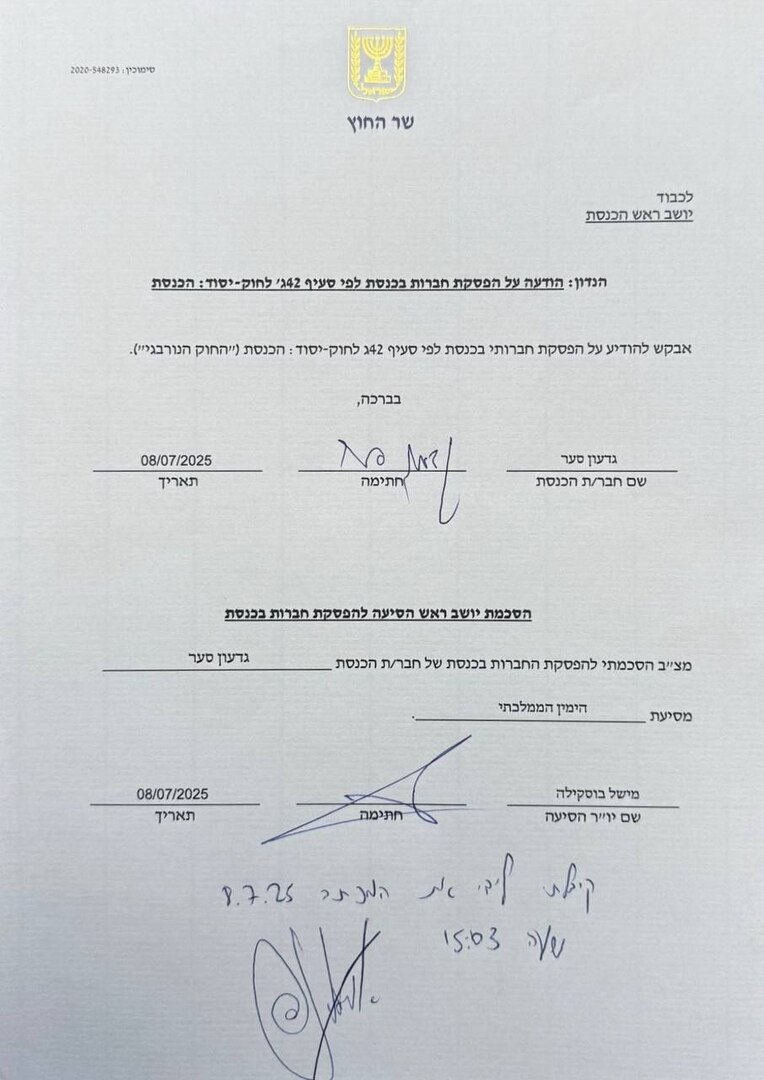 סימוכין: 2020-548293
ישראל
שר החוץ
לכבוד
יושב ראש הכנסת
הנדון: הודעה על הפסקת חברות בכנסת לפי סעיף 42ג' לחוק-יסוד: הכנסת
אבקש להודיע על הפסקת חברותי בכנסת לפי סעיף 42ג לחוק-יסוד: הכנסת ("החוק הנורבגי").
בברכה,
גדעון סער גדעון סער 08/07/2025
שם חבר/ת הכנסת חתימה תאריך
הסכמת יושב ראש הסיעה להפסקת חברות בכנסת
מצ"ב הסכמתי להפסקת החברות בכנסת של חבר/ת הכנסת גדעון סער
מסיעת הימין הממלכתי.
מישל בוסקילה 08/07/2025
שם יו"ר הסיעה חתימה תאריך
קיבלתי לידי את המכתב 8.7.25
שעה 15:03